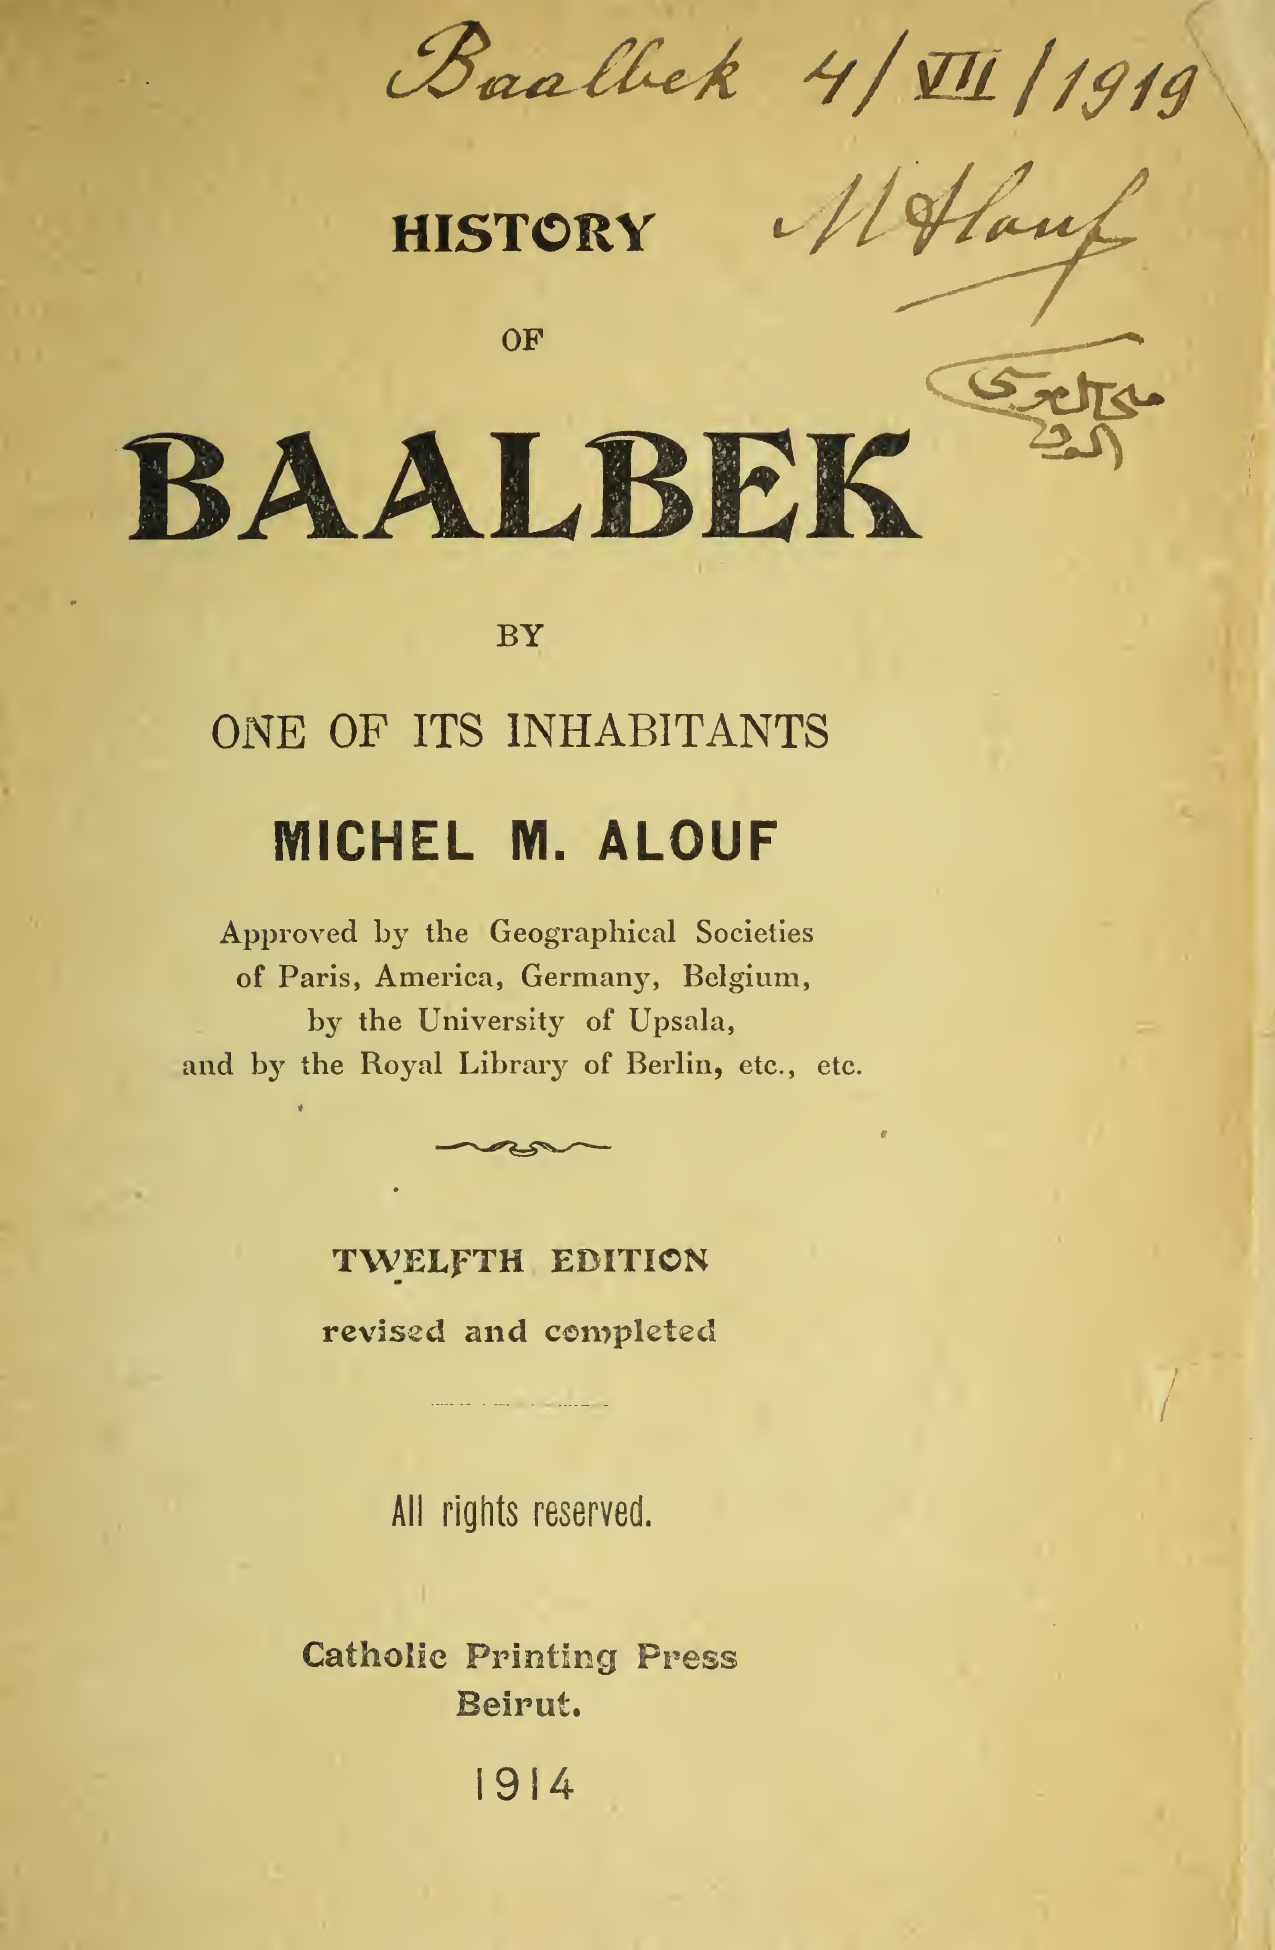 Baalbek 4/VII/1919
M Alouf
HISTORY
OF
BAALBEK
BY
ONE OF ITS INHABITANTS
MICHEL M. ALOUF
Approved by the Geographical Societies
of Paris, America, Germany, Belgium,
by the University of Upsala,
and by the Royal Library of Berlin, etc., etc.
TWELFTH EDITION
revised and completed
All rights reserved.
Catholic Printing Press
Beirut.
1914